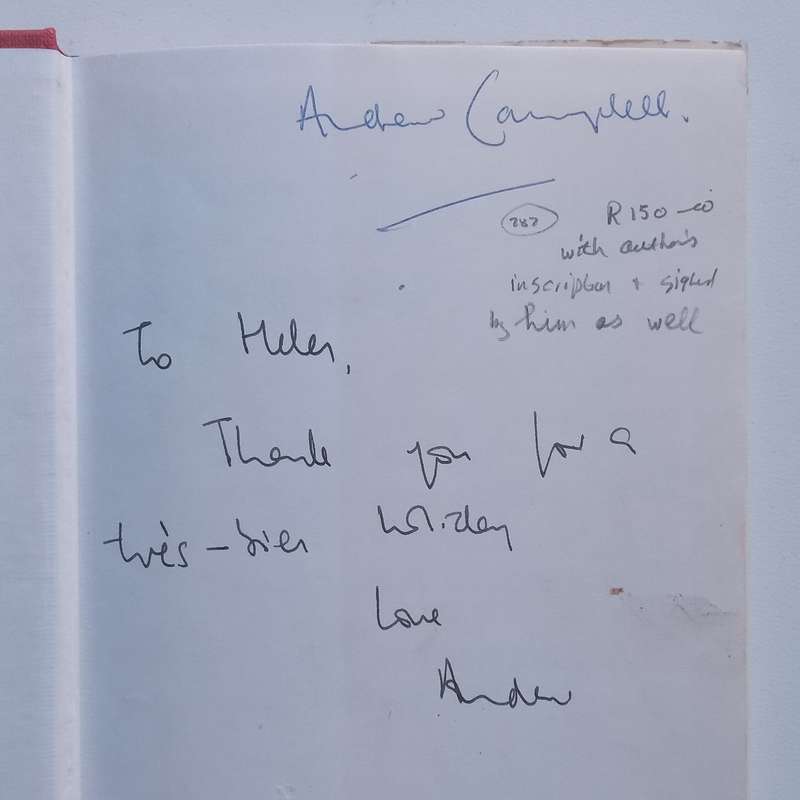 Andrew Campbell.
282
R150-00
with author's
inscription + signed
by him as well
To Helen,
Thank you for a
très-bien holiday
Love
Andrew